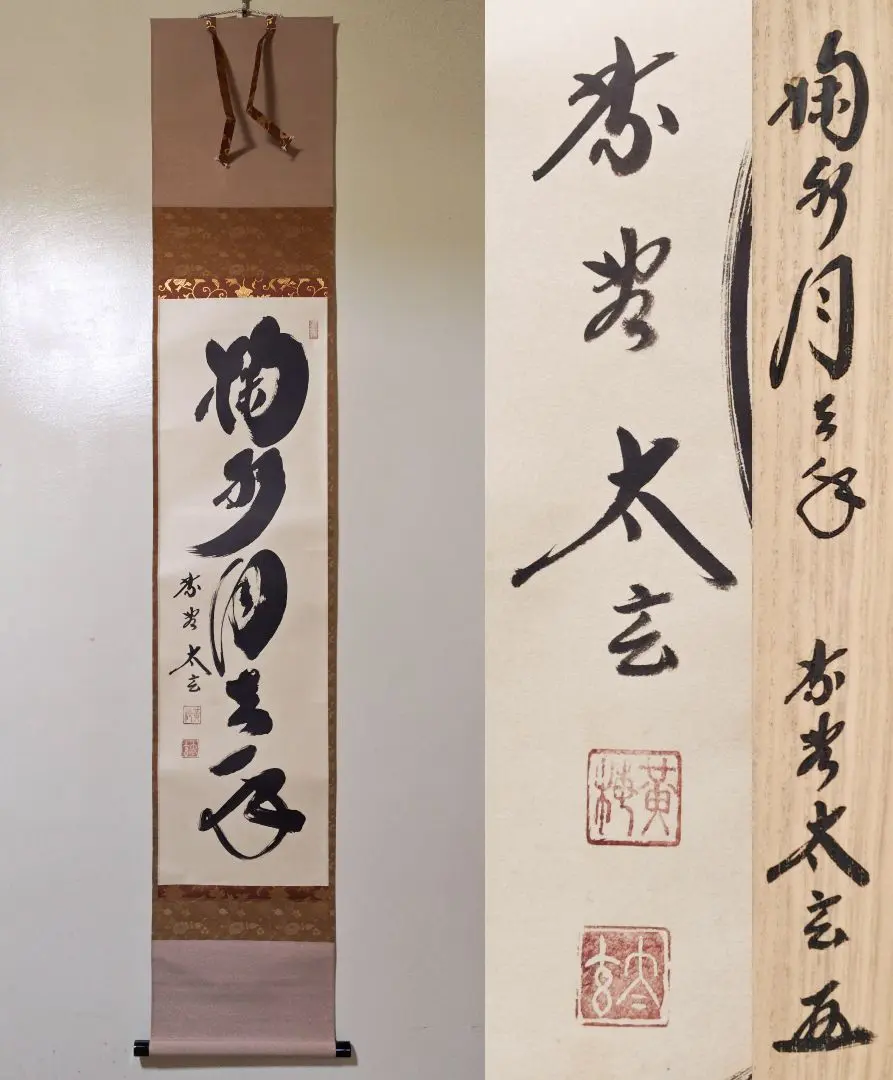 掬水月在手
紫野 太玄
紫野
太玄
黃梅
太玄
掬水月在手
紫野 太玄